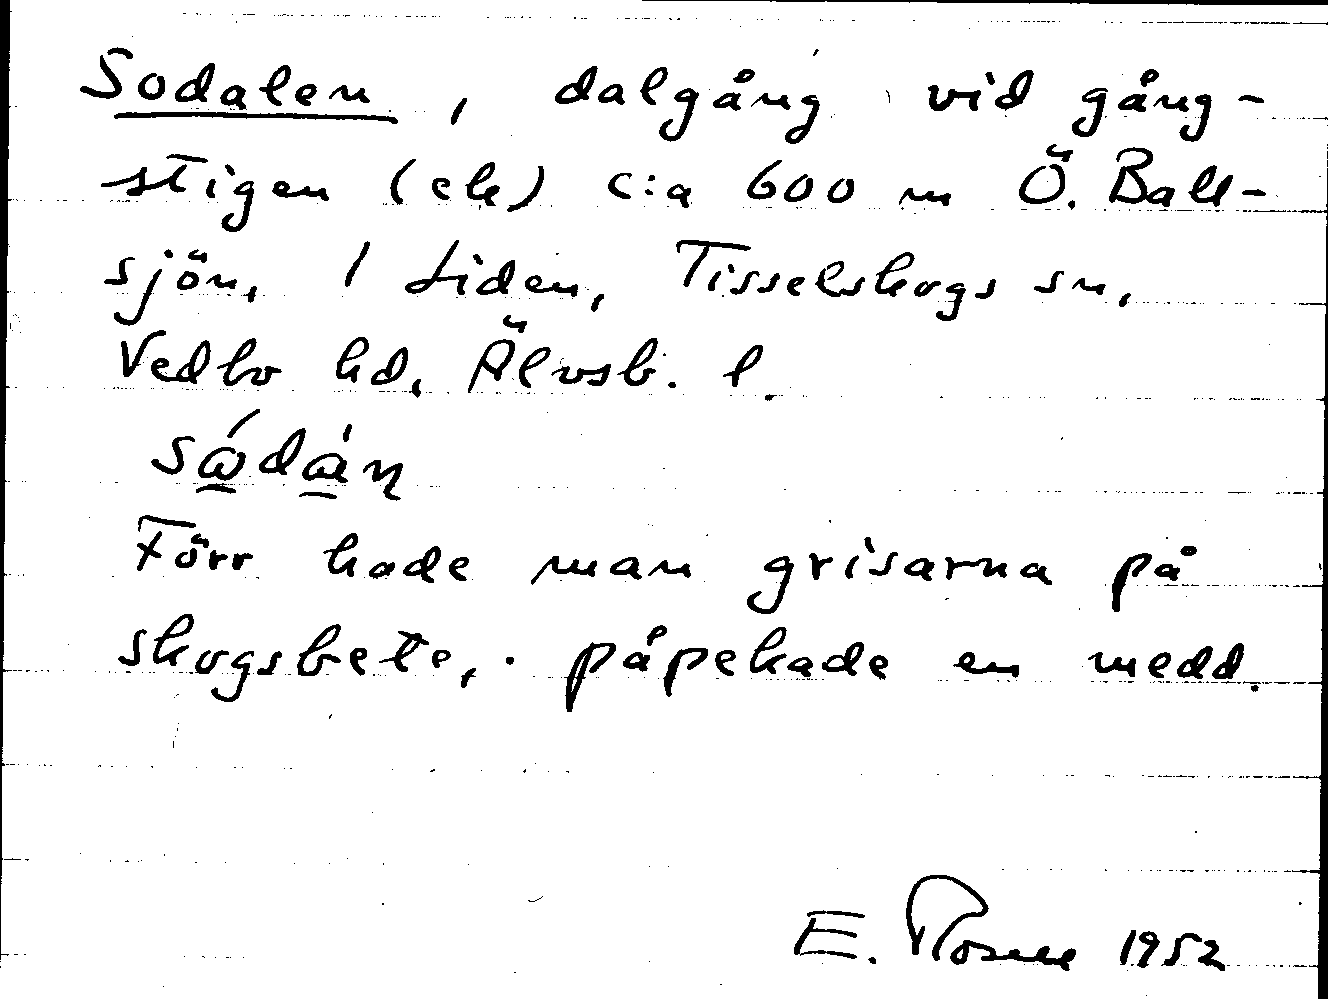 Sodalen, dalgång vid gång-
stigen (ek) c:a 600 m Ö. Ball-
sjön, 1 Liden, Tisselskogs sn,
Vedbo hd, Älvsb. l.
Förr hade man grisarna på
skogsbete, påpekade en medd.
E. 1952